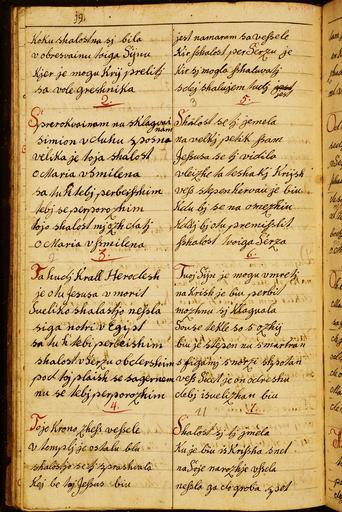 39.
koku shalostna si bila
v obresvainu toiga Sijnu
kjer je mogu krij prelitj
sa vole greshnika
2.
Sprerokvainam nu shlagvai
nam
simion v duhu sposna
velika je toja shalost
o Maria vsmilena
sa tu k tebj perbeishim
tebj se perporozhim
tojo shalost mj zhdatj
o Maria vsmilena
3.
Ta hudj Krall Herodesh
je otu Jesusa vmorit
sveliko shalostjo nesla
siga notri v Egijpt
sa tu k tebj perbeishim
shalost vserzu obdershim
pod toj plaish se sagernem
nu se tebj perporozhim
4.
Toje krono zhess vessele
v templj je ostalu blu
shalostjo se sj sprashvala
kej be toj Jesus biu
jest namaram sa vessele
kir shalost per Serzu je
kir sj mogla shaluvatj
sdej shalujem tudj jest
5.
Shalost se tj jemela
na velkj petik sam
Jesusa se tj vidila
vleizhe ta teshak Krijsh
vess skpenkervau je biu
kdu bj se na omezhiu
kdaj bj otu premislit
shalost tvoiga Serza
6.
Tvoj Sijn je mogu vmretj
na Krish je biu perbit
mozhnu sj klaguala
Souse tekle so s ozhij
biu je skpen nu smartvan
vess Suet je on odreshu
debj isvelizhan biu
7.
Shalost sj tj jmela
ku je biu is Krisha snet
na Soje narozhje vsela
nesla ga do groba spet